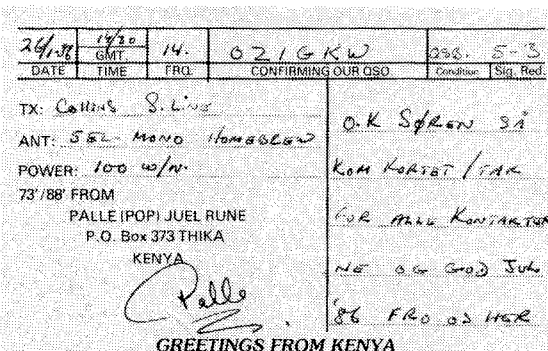 26/1-86 14/20 14. OZ1GKW QSB. 5-3
DATE GMT. TIME FRQ. CONFIRMING OUR QSO Condition Sig. Red.
TX: Collins S. Line
ANT: 5EL- MONO HOMEBREW
POWER: 100 w/n.
73'/88' FROM
PALLE (POP) JUEL RUNE
P.O. Box 373 THIKA
KENYA
Palle
O.K SØREN SÅ
KOM KORTET / TAK
FOR ALLE KONTAKTER
NE OG GOD JUL
'86 FRO OS HER
GREETINGS FROM KENYA